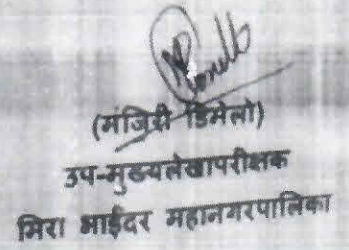 (मंजिरी डिमेलो)
उप-मुख्यलेखापरीक्षक
मिरा भाईंदर महानगरपालिका